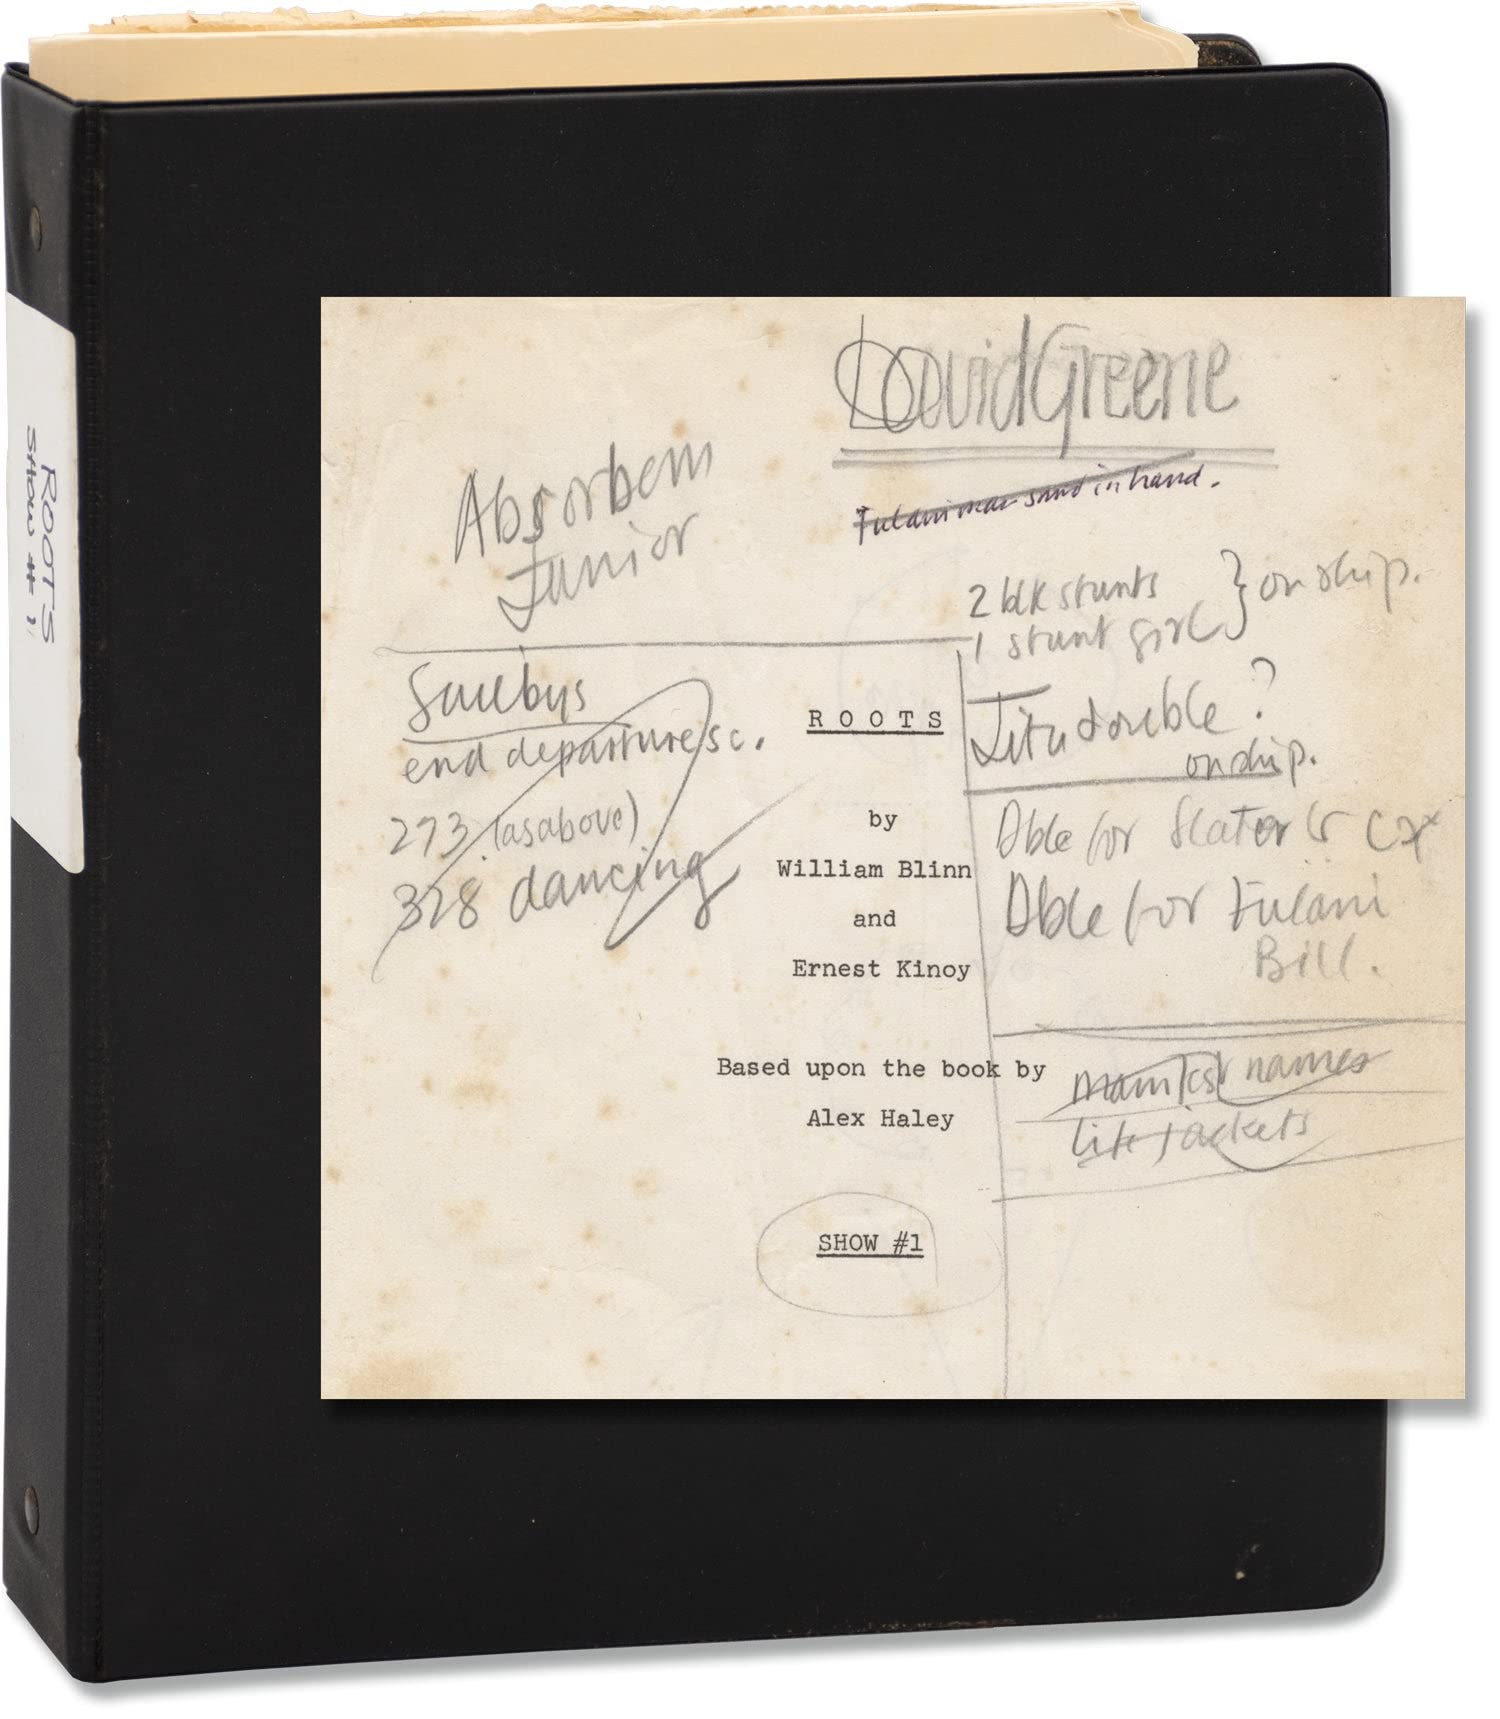 ROOTS
SHOW # 1
David Greene
Fulani man sand in hand.
Absorbem
Junior
2 blk stunts } on ship.
1 stunt girl
end departure sc.
273 (as above)
328 dancing
Fitu double ?
on ship.
Dble for Slater &
Dble for Fulani
Bill.
names
Life jackets
R O O T S
by
William Blinn
and
Ernest Kinoy
Based upon the book by
Alex Haley
SHOW #1